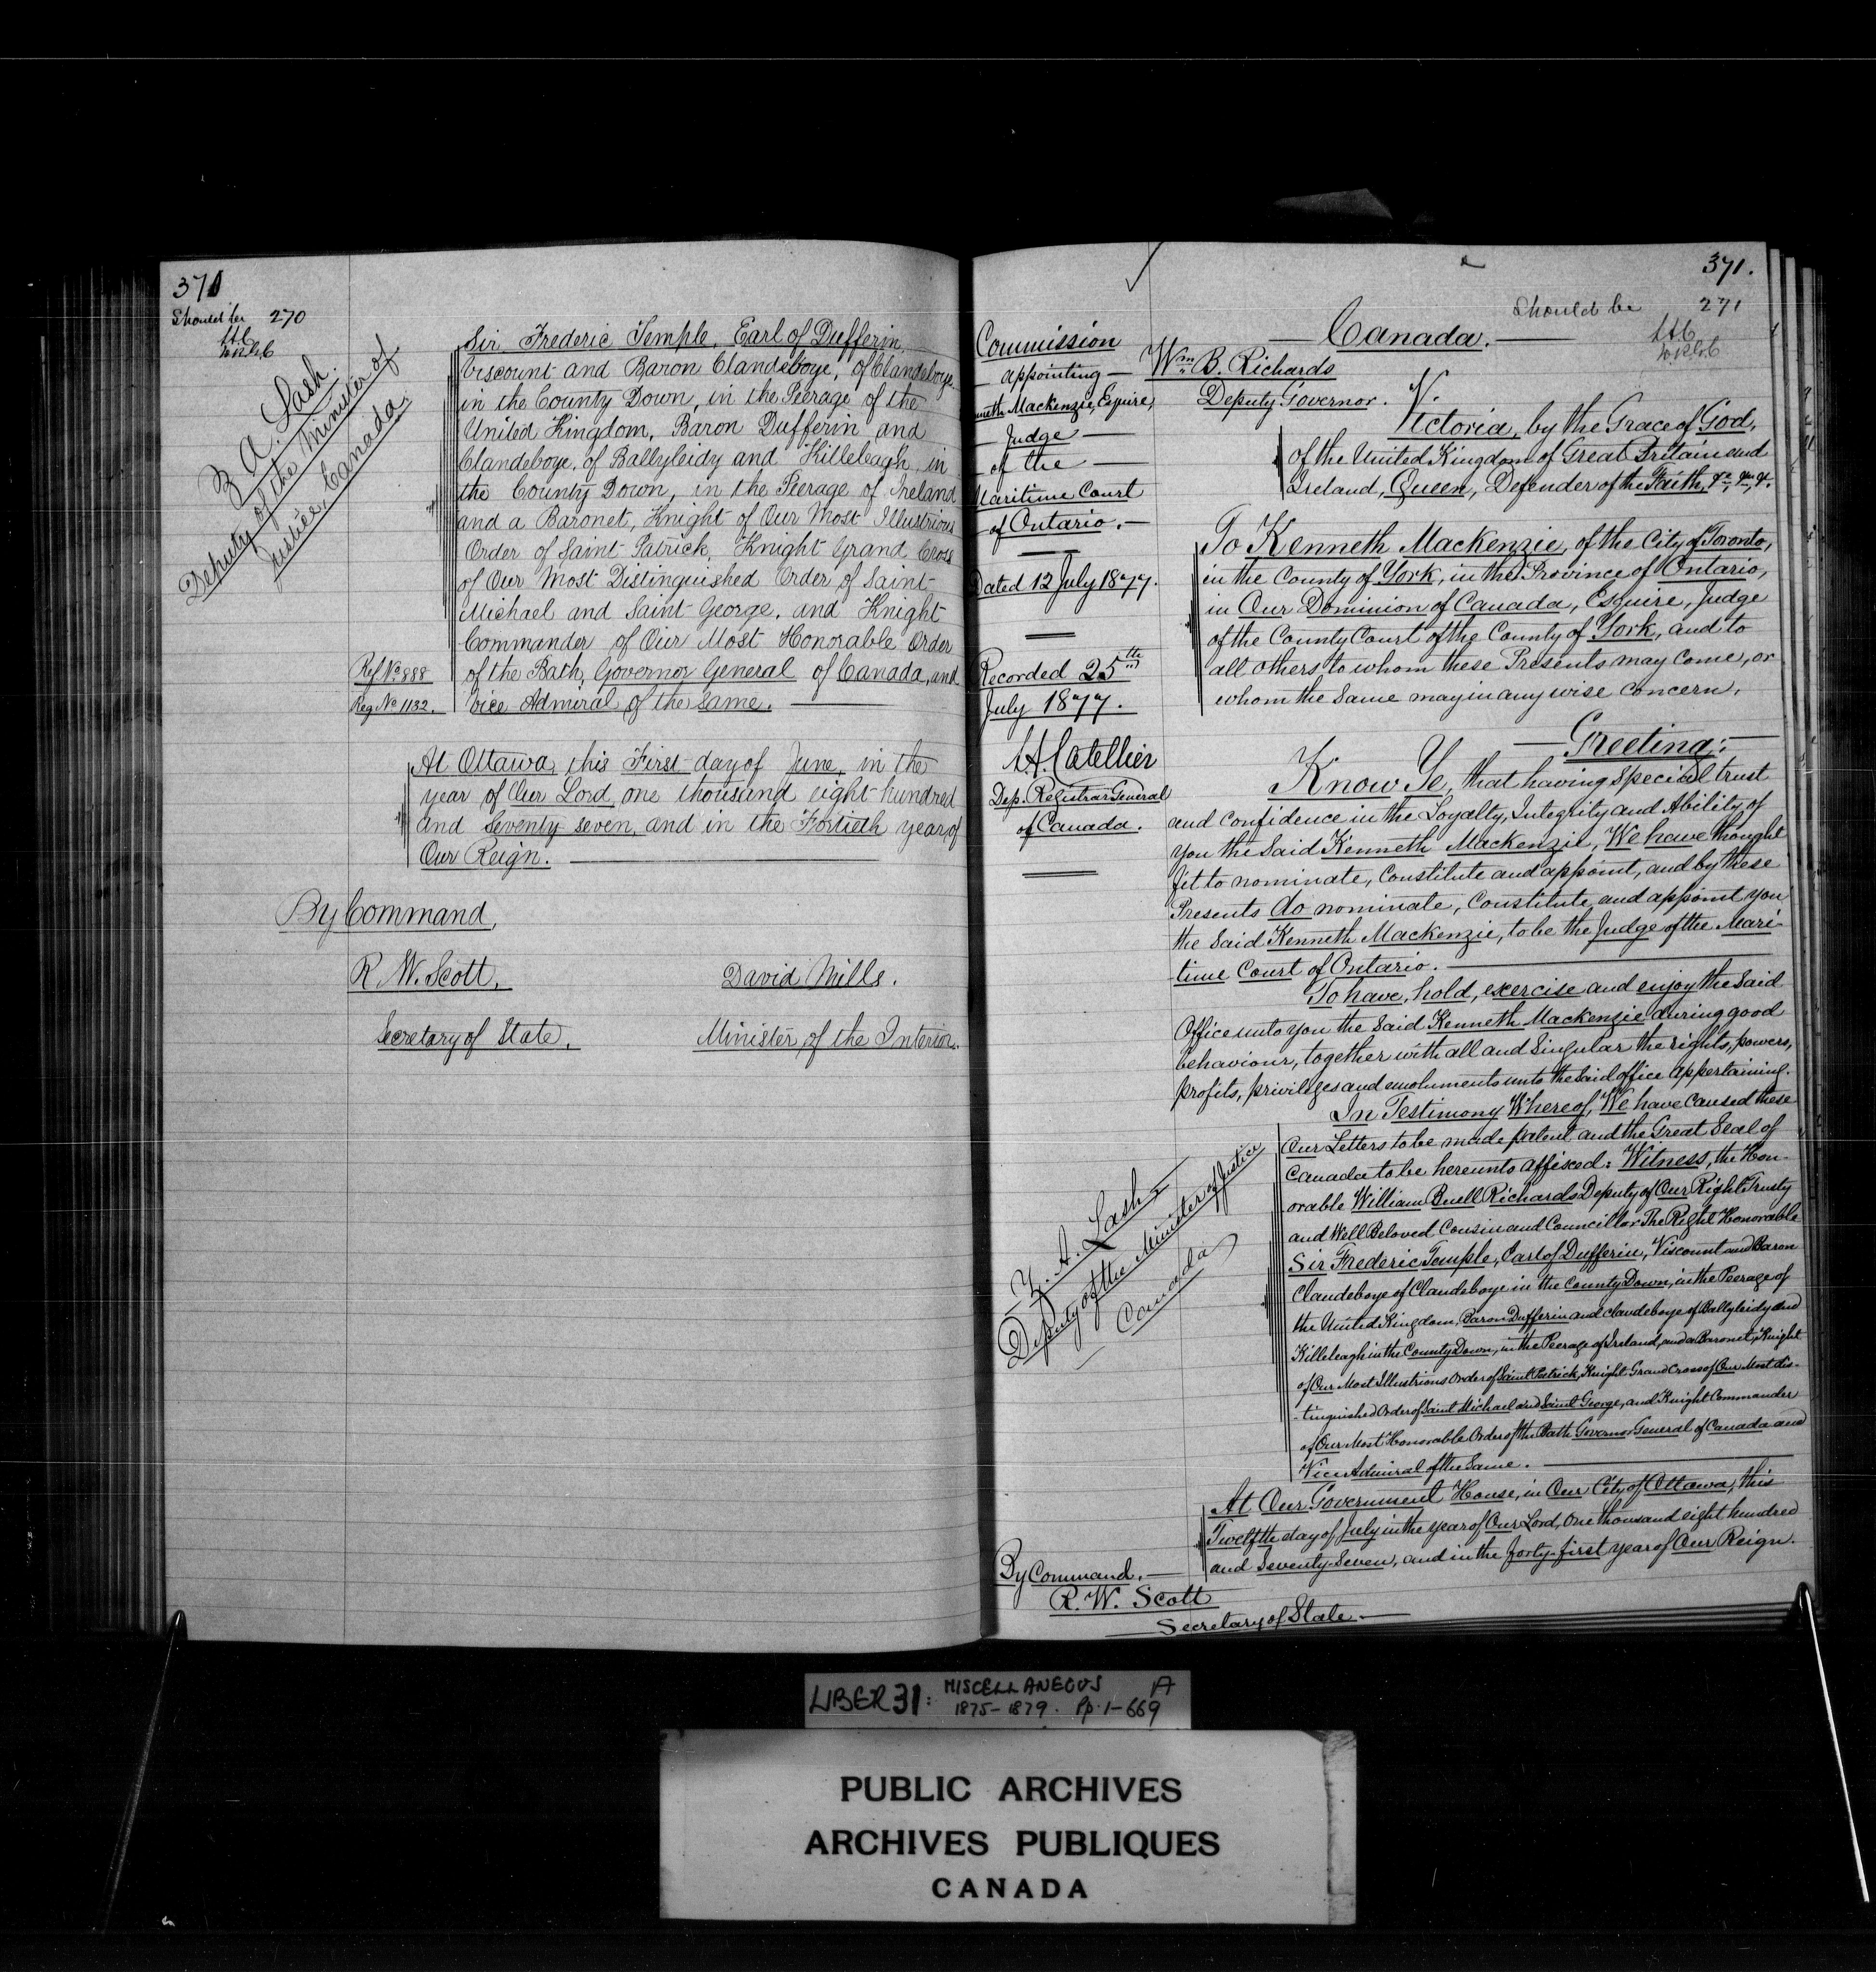 371
Should be 270
Z. A. Lash.
Deputy of the Minister of
Justice, Canada.
Sir Frederic Temple, Earl of Dufferin,
Viscount and Baron Clandeboye, of Clandeboye
in the County Down, in the Peerage of the
United Kingdom, Baron Dufferin and
Clandeboye, of Ballyleidy and Killeleagh, in
the County Down, in the Peerage of Ireland
and a Baronet, Knight of Our Most Illustrious
Order of Saint Patrick, Knight Grand Cross
of Our Most Distinguished Order of Saint
Michael and Saint George, and Knight
Commander of Our Most Honorable Order
of the Bath, Governor General of Canada, and
Vice Admiral of the same.
Ref No 888
Reg No 1132.
At Ottawa, this First day of June, in the
year of Our Lord, one thousand eight hundred
and seventy seven, and in the Fortieth year of
Our Reign.
By Command,
R. W. Scott,
Secretary of State.
David Mills.
Minister of the Interior.
371.
Should be 271
Commission
appointing
Kenneth Mackenzie, Esquire,
Judge
of the
Maritime Court
of Ontario.
Dated 12 July 1877.
Recorded 25th
July 1877.
L. A. Catellier
Dep. Registrar General
of Canada.
Canada.
Wm B. Richards
Deputy Governor.
Victoria, by the Grace of God,
of the United Kingdom of Great Britain and
Ireland, Queen, Defender of the Faith, &c, &c, &c.
To Kenneth Mackenzie, of the City of Toronto,
in the County of York, in the Province of Ontario,
in Our Dominion of Canada, Esquire, Judge
of the County Court of the County of York, and to
all others to whom these Presents may come, or
whom the same may in any wise concern,
Greeting:
Know Ye, that having special trust
and confidence in the Loyalty, Integrity and Ability of
you the said Kenneth Mackenzie, We have thought
fit to nominate, constitute and appoint, and by these
Presents do nominate, constitute and appoint you
the said Kenneth Mackenzie, to be the Judge of the Mari-
-time Court of Ontario.
To have, hold, exercise and enjoy the said
Office unto you the said Kenneth Mackenzie during good
behaviour, together with all and singular the rights, powers,
profits, privileges and emoluments unto the said office appertaining.
In Testimony Whereof, We have caused these
Our Letters to be made patent and the Great Seal of
Canada to be hereunto affixed: Witness, the Hon-
orable William Buell Richards Deputy of Our Right Trusty
and Well Beloved Cousin and Councillor The Right Honorable
Sir Frederic Temple, Earl of Dufferin, Viscount and Baron
Clandeboye of Clandeboye in the County Down, in the Peerage of
the United Kingdom, Baron Dufferin and Clandeboye of Ballyleidy and
Killeleagh in the County Down, in the Peerage of Ireland, and a Baronet, Knight
of Our Most Illustrious Order of Saint Patrick, Knight Grand Cross of Our Most dis-
-tinguished Order of Saint Michael and Saint George, and Knight Commander
of Our Most Honorable Order of the Bath Governor General of Canada and
Vice Admiral of the Same.
Z. A. Lash
Deputy of the Minister of Justice
Canada
At Our Government House, in Our City of Ottawa, this
Twelfth day of July in the year of Our Lord, One thousand eight hundred
and Seventy-Seven, and in the forty-first year of Our Reign.
By Command.
R. W. Scott
Secretary of State.
LIBER 31: MISCELLANEOUS A
1875-1879. Pp. 1-669
PUBLIC ARCHIVES
ARCHIVES PUBLIQUES
CANADA